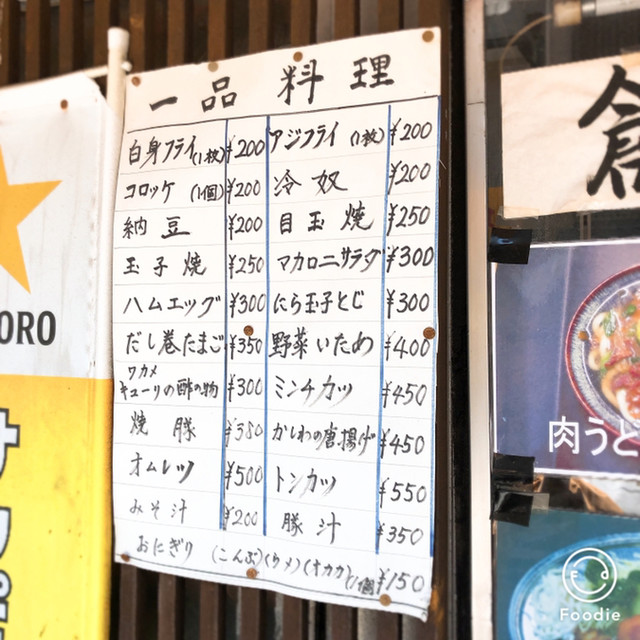 一品料理
白身フライ(1枚) ¥200 アジフライ(1枚) ¥200
コロッケ(1個) ¥200 冷奴 ¥200
納豆 ¥200 目玉焼 ¥250
玉子焼 ¥250 マカロニサラダ ¥300
ハムエッグ ¥300 にら玉子とじ ¥300
だし巻たまご ¥350 野菜いため ¥400
ワカメ
キューリの酢の物 ¥300 ミンチカツ ¥450
焼豚 ¥380 かしわの唐揚げ ¥450
オムレツ ¥500 トンカツ ¥550
みそ汁 ¥200 豚汁 ¥350
おにぎり (こんぶ)(ウメ)(オカカ) 1個 ¥150
ORO
肉うど
Foodie